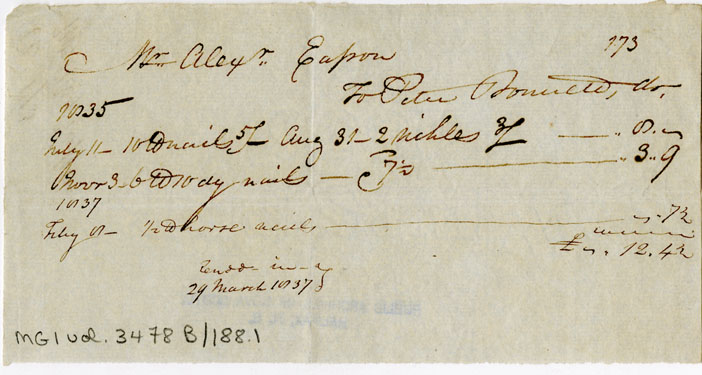 173
Mr Alexr Eason
To Peter Bonnett, Dr,
1835
July 11 - 10 lb nails 5/ Aug 31 - 2 sickles 3/ — „ 8 „ -
Novr 3 - 6 lb 10 dy nails — 7½ — „ 3 „ 9
1837
Feby 8 - ½ lb horse nails — „ - „ 7½
£ „ 12 „ 4½
29 March 1837
MG1 vol. 3478 B/188.1